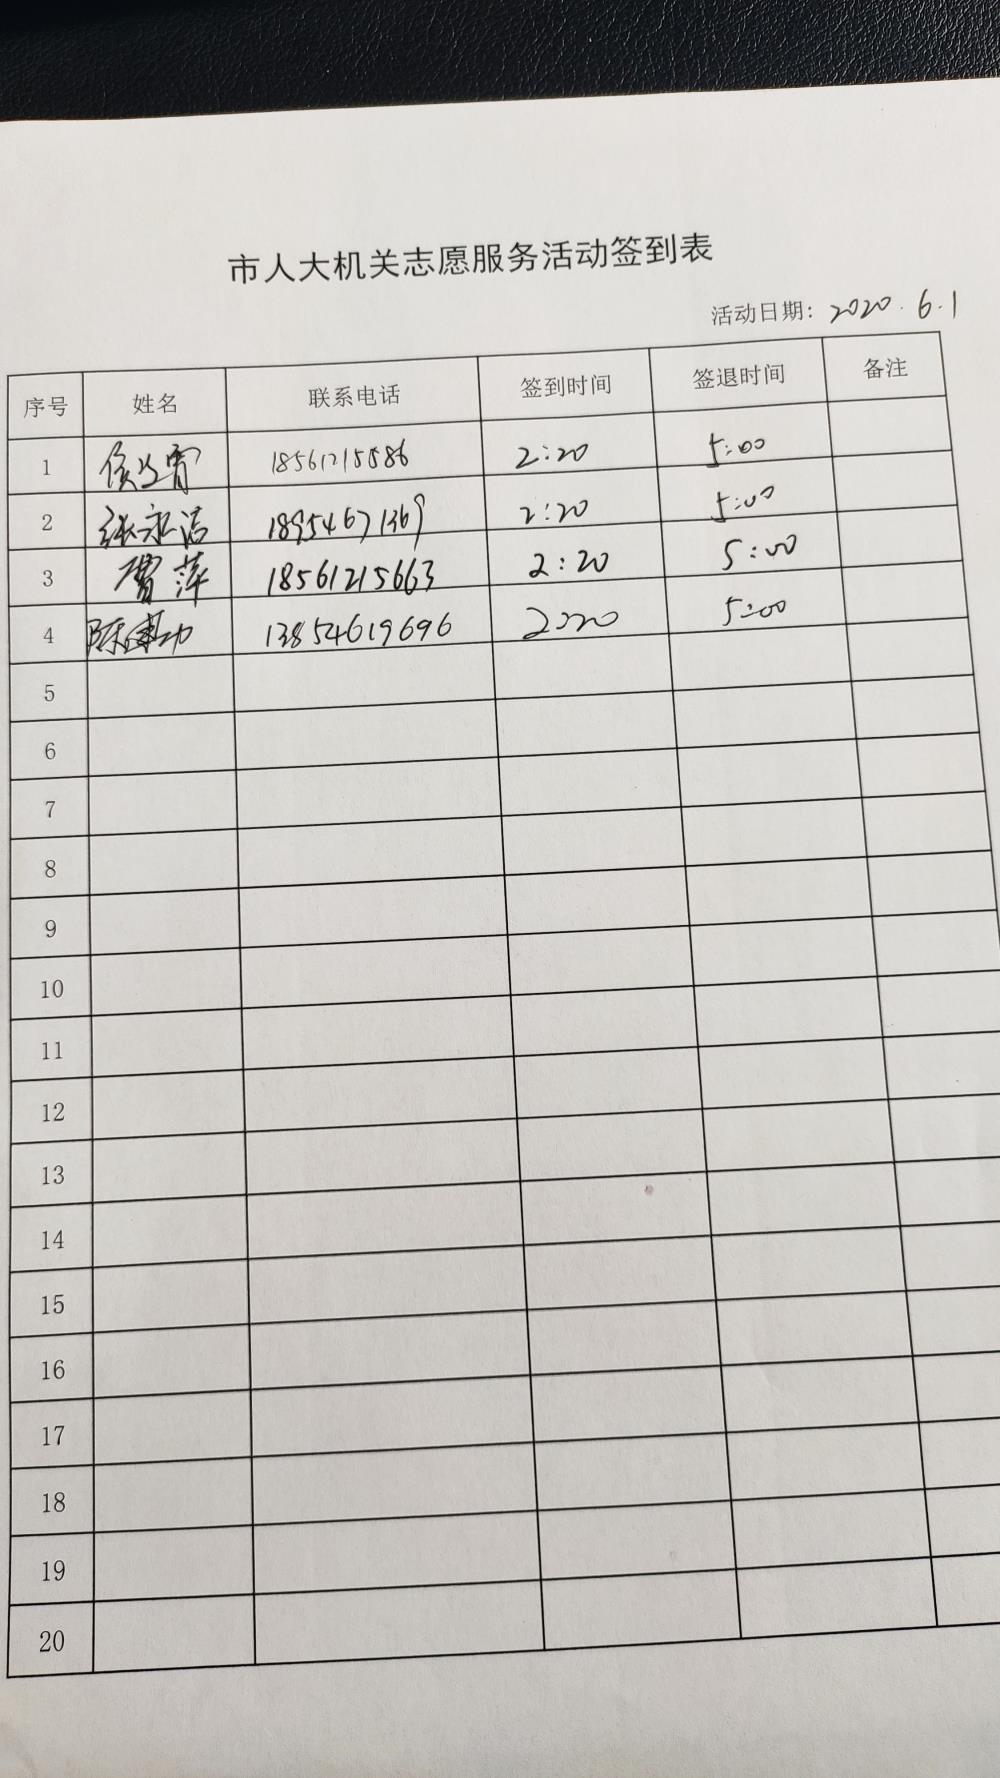 市人大机关志愿服务活动签到表
活动日期: 2020.6.1
序号 姓名 联系电话 签到时间 签退时间 备注
1 18561215586 2:20 5:00
2 张永洁 18954671369 2:20 5:00
3 贾萍 18561215663 2:20 5:00
4 陈建功 13854619696 2:20 5:00
5
6
7
8
9
10
11
12
13
14
15
16
17
18
19
20